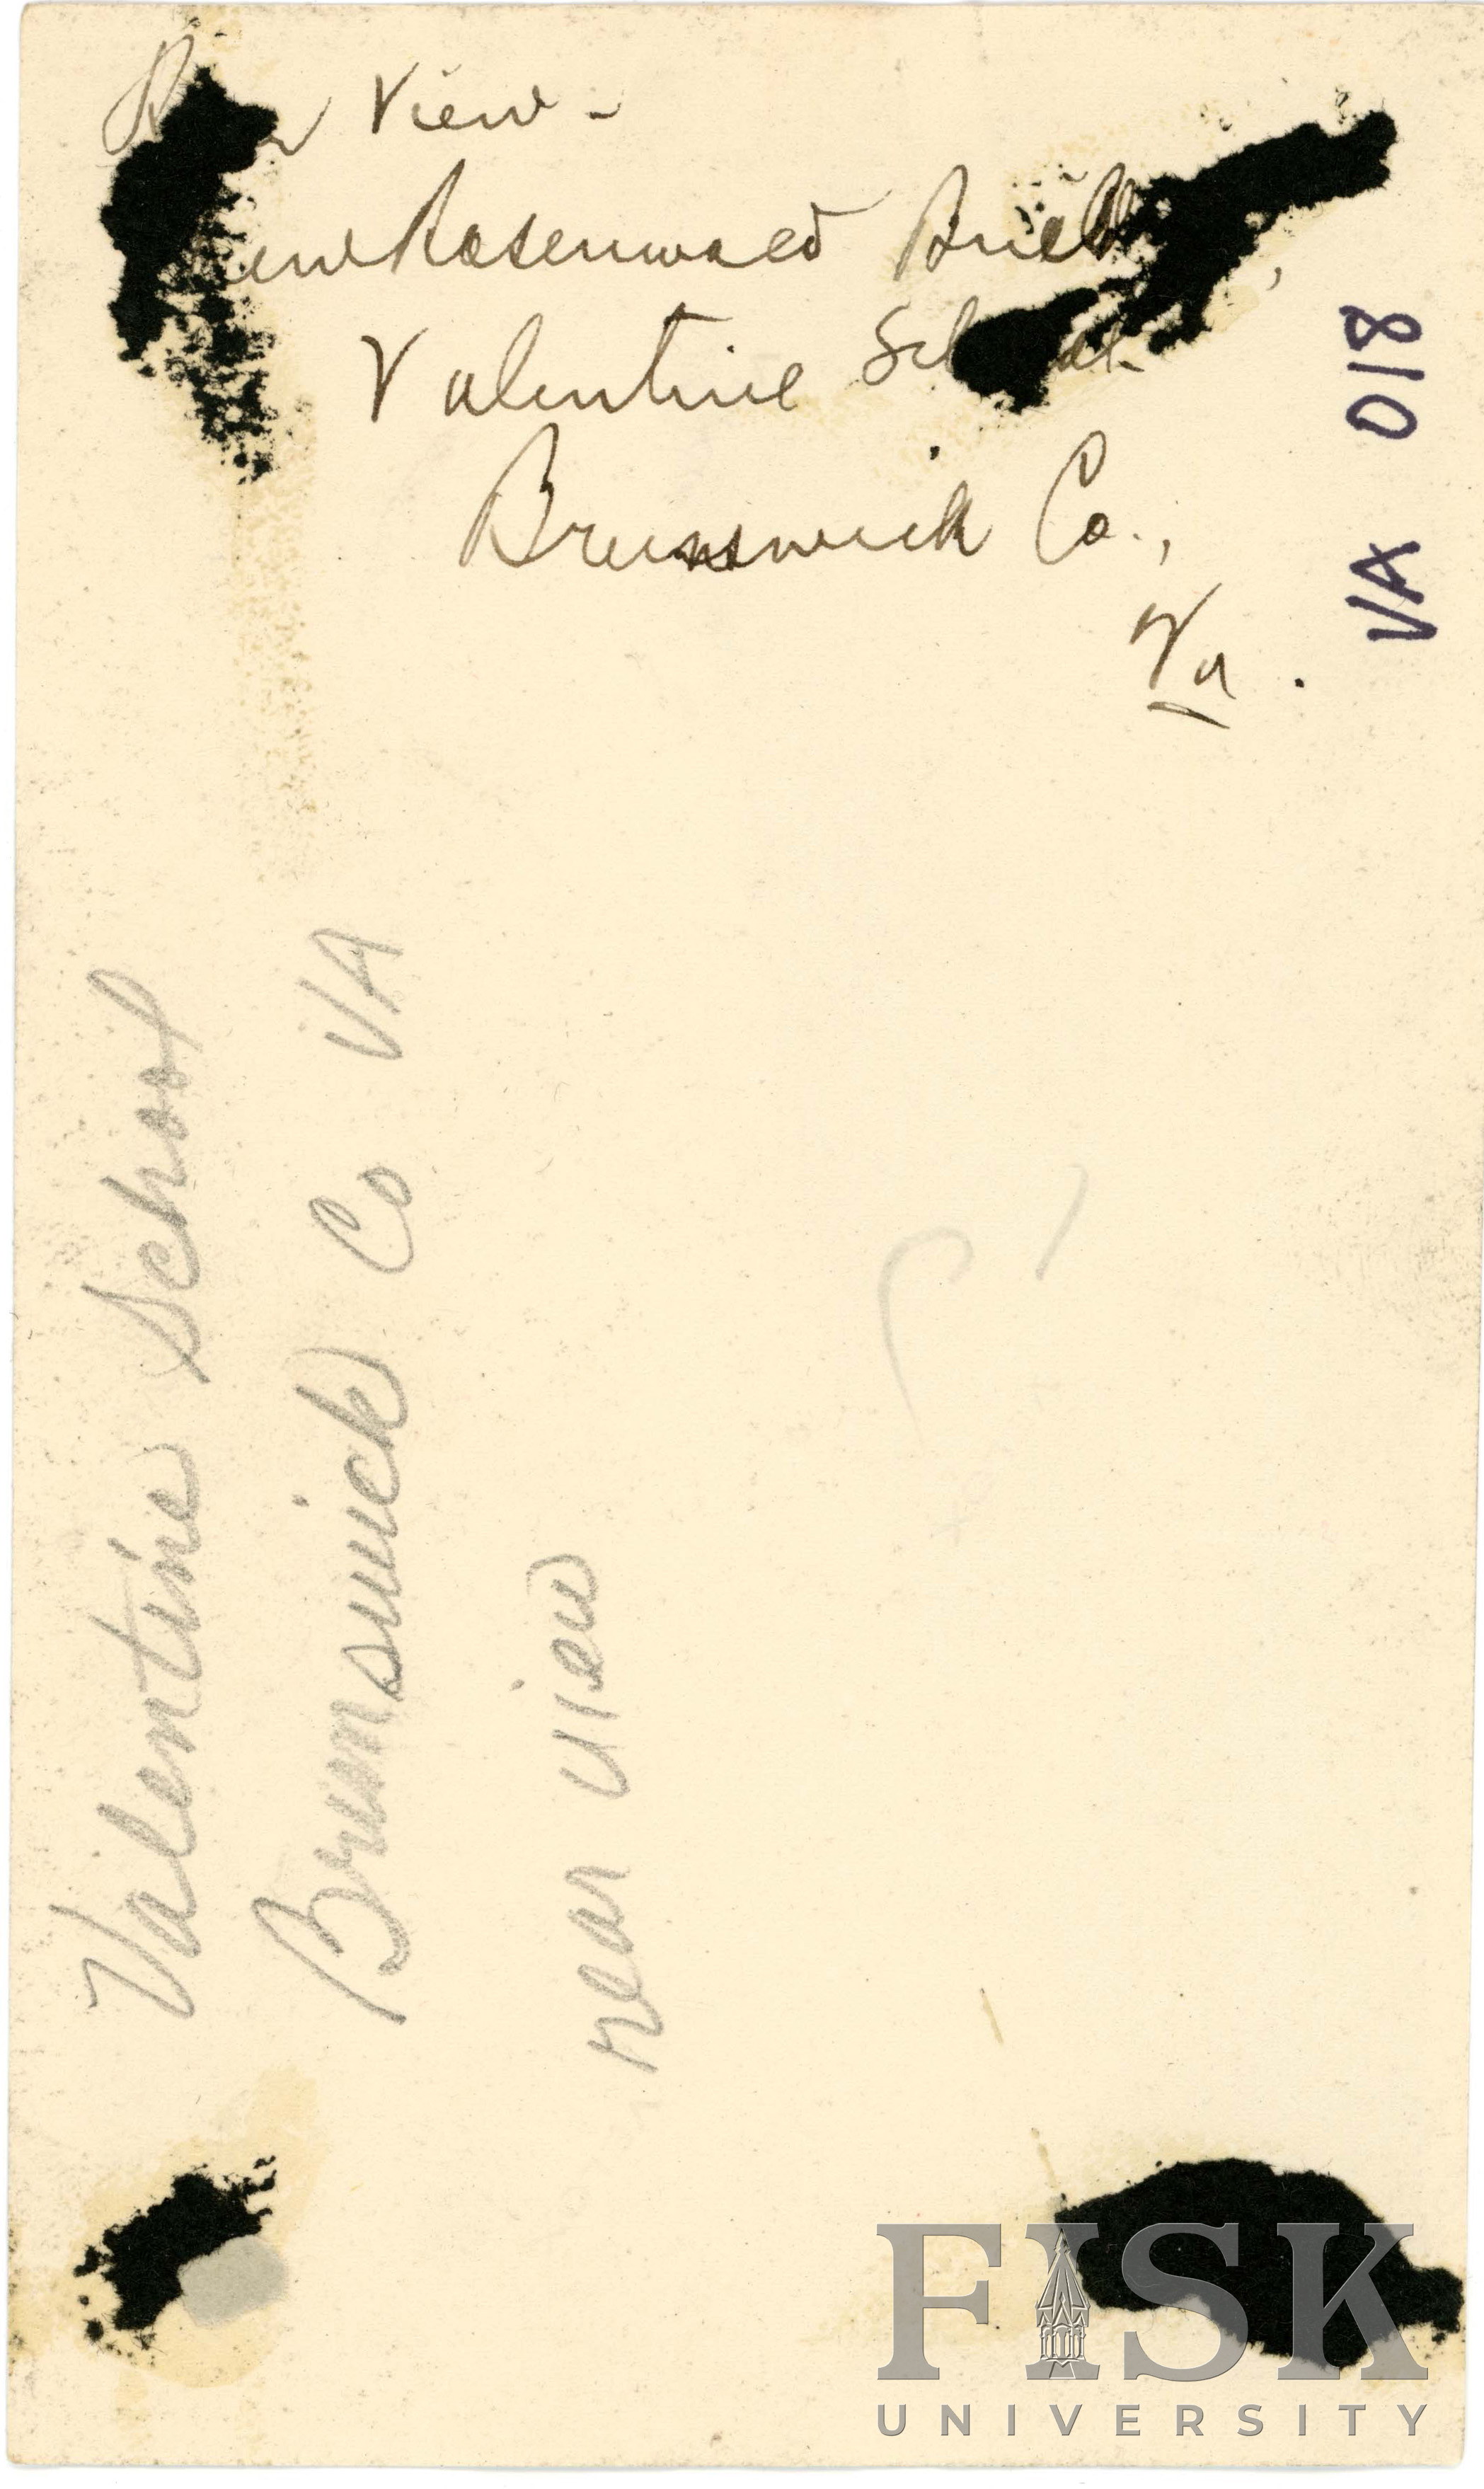 View -
Rosenwald
Valentine School
Brunswick Co.,
Va.
VA 018
Valentine School
Brunswick Co VA
rear view
FISK
UNIVERSITY